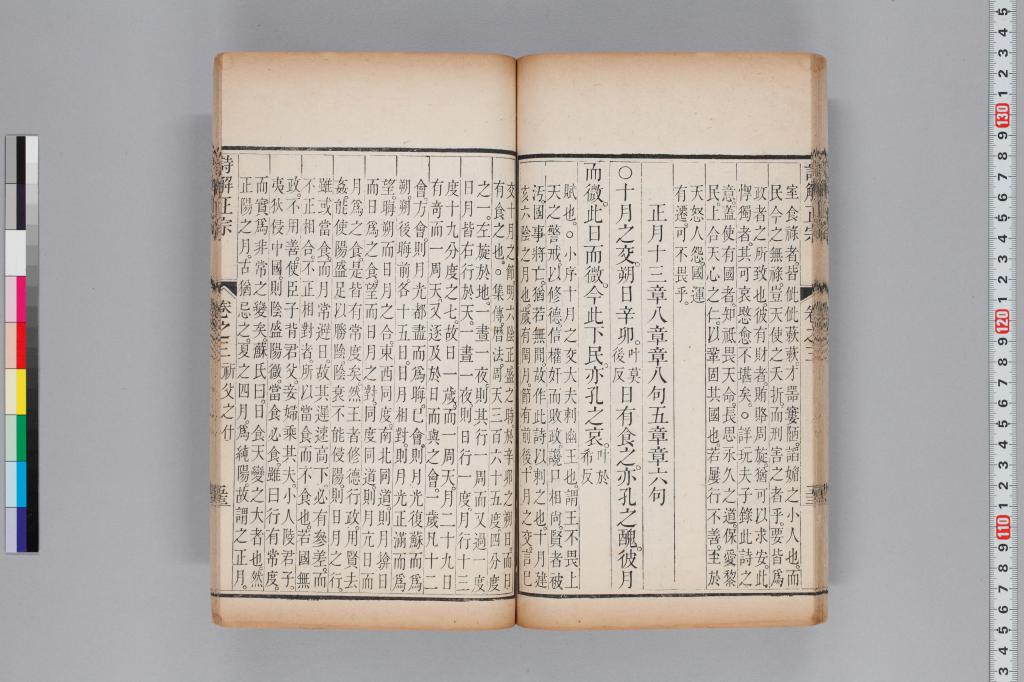 室食祿者皆佌佌蓛蓛才器窶陋謟媚之小人也而
民今之無祿豈天使之夭折而刑害之者乎要皆爲
政者之所致也彼有財者賄賂周旋猶可以求安此
惸獨者其可哀愍愈不堪矣○詳玩夫子錄此詩之
意蓋使有國者知祗畏天命長思永久之道保愛黎
民上合天心之仁以鞏固其國也若屢行不善至於
天怒人怨國運
有遷可不畏乎
正月十三章八章章八句五章章六句
○十月之交朔日辛卯叶莫後反日有食之亦孔之醜彼月
而微此日而微今此下民亦孔之哀叶於希反
賦也○小序十月之交大夫刺幽王也謂王不畏上
天之警戒以修德信權奸而敗政讒口相向賢者被
汚國事將亡猶若無聞故作此詩以刺之也十月建
亥六陰之月也歲有閏月節有前後十月之交言已
交十月之節明六陰正盛之時於辛卯之朔日而日
有食之也○集傳曆法周天三百六十五度四分度
之一左旋於地一晝一夜則其行一周而又過一度
日月皆右行於天一晝一夜則日行一度月行十三
度十九分度之七故日一歲而一周天月二十九日
有奇而一周天又逐及於日而與之會一歲凡十二
會方會則月光都盡而爲晦已會則月光復蘇而爲
朔朔後晦前各十五日日月相對則月光正滿而爲
望晦朔而日月之合東西同度南北同道則月揜日
而日爲之食望而日月之對同度同道則月亢日而
月爲之食是皆有常度矣然王者修德行政用賢去
姦能使陽盛足以勝陰陰衰不能侵陽則日月之行
雖或當食而月常避日故其遲速高下必有參差而
不正相合不正相對者所以當食而不食也若國無
政不用善使臣子背君父妾婦乘其夫小人陵君子
夷狄侵中國則陰盛陽微當食必食雖曰行有常度
而實爲非常之變矣蘇氏曰日食天變之大者也然
正陽之月古猶忌之夏之四月爲純陽故謂之正月
詩解正宗
卷之三 祈父之什